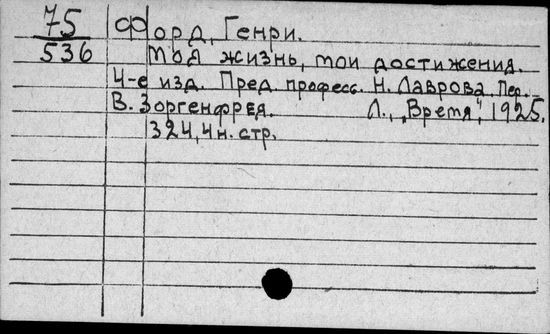 75 Форд, Генри.
536 Моя жизнь, мои достижения.
4-е изд. Пред. професс. Н. Лаврова. Пер.
В. Зоргенфрея. Л., „Время", 1925.
324, 4 н. стр.